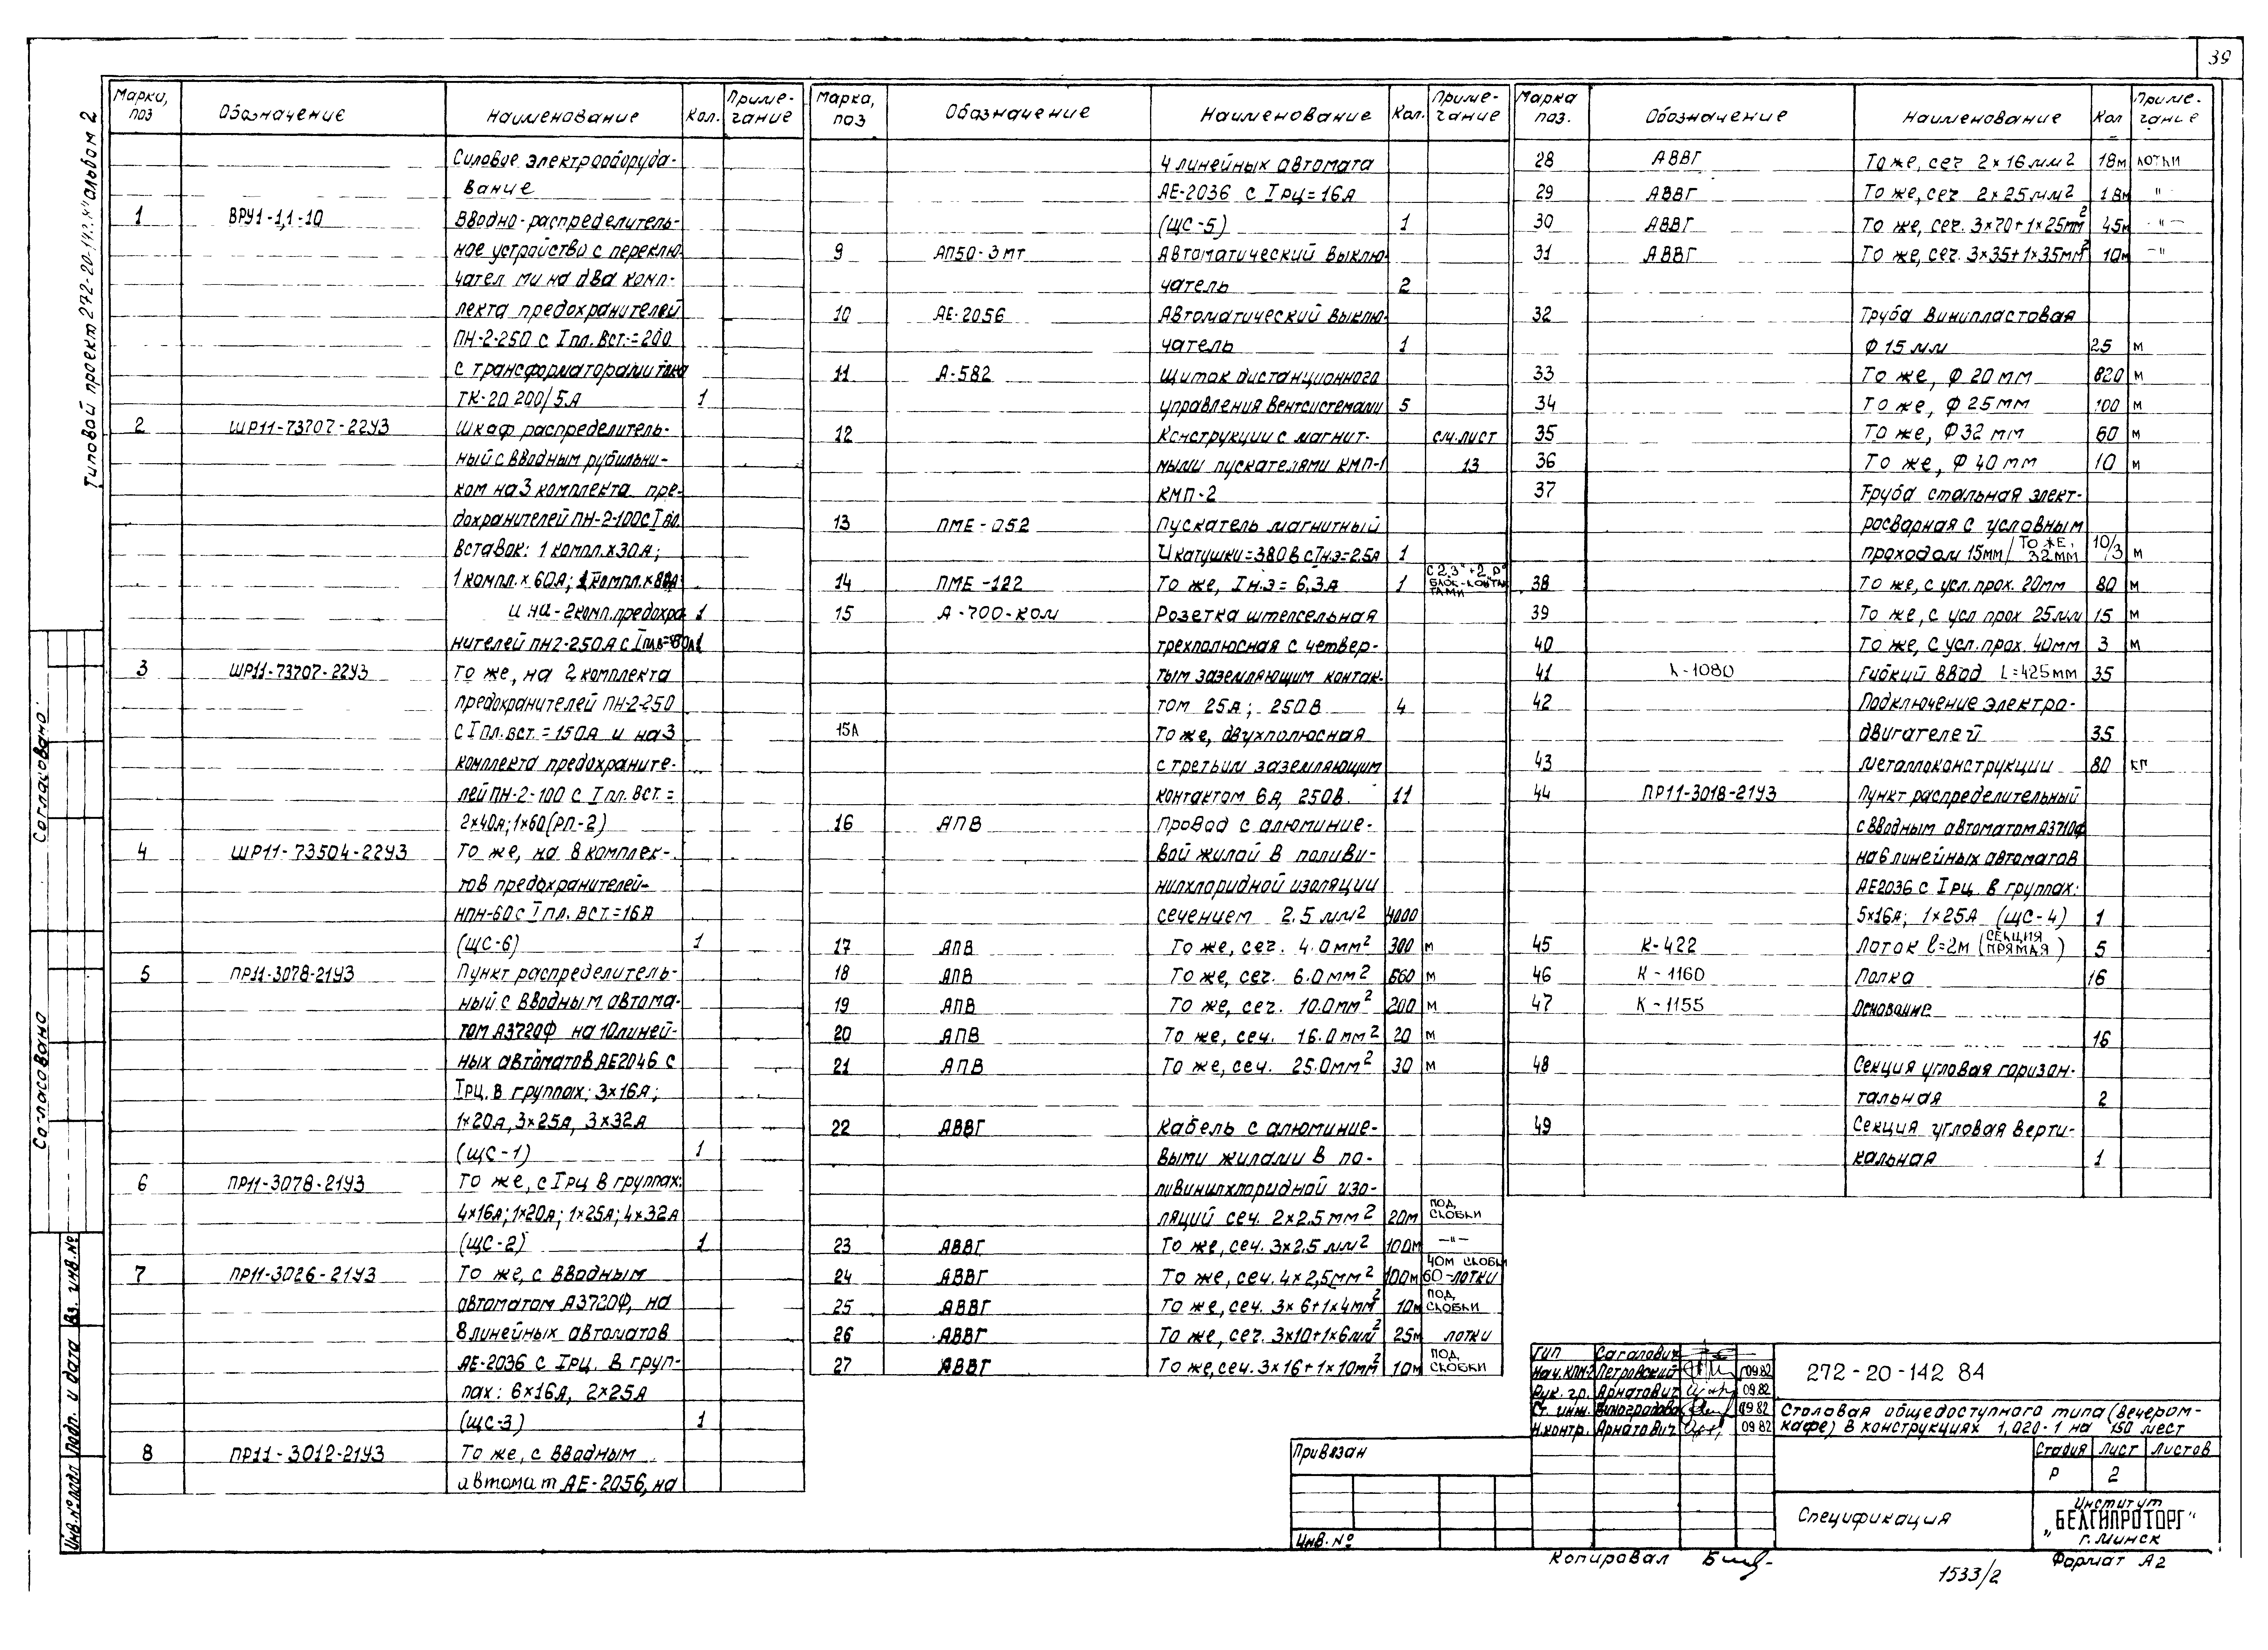 39
Типовой проект 272-20-142.84 Альбом 2
Марки, поз Обозначение Наименование Кол. Приме-чание
Силовое электрооборудо-
вание
1 ВРУ1-1,1-10 Вводно-распределитель-
ное устройство с переклю-
чател ми на два комп-
лекта предохранителей
ПН-2-250 с Iпл.вст.=200
с трансформаторами тока
ТК-20 200/5А 1
2 ШР11-73707-22У3 Шкаф распределитель-
ный с вводным рубильни-
ком на 3 комплекта пре-
дохранителей ПН-2-100 с I пл.
вставок: 1 компл.х30А;
1 компл.х60А; 1 компл.х80А
и на-2комп.предохра 1
нителей ПН2-250А с Iпл.в=80А 1
3 ШР11-73707-22У3 То же, на 2 комплекта
предохранителей ПН-2-250
с I пл.вст.=150А и на 3
комплекта предохраните-
лей ПН-2-100 с I пл. вст.=
2х40А; 1х60(РП-2)
4 ШР11-73504-22У3 То же, на 8 комплек-
тов предохранителей-
НПН-60 с I пл. вст.=16А
(ЩС-6) 1
5 ПР11-3078-21У3 Пункт распределитель-
ный с вводным автома-
том А3720Ф на 10 линей-
ных автоматов АЕ2046 с
Iрц. в группах: 3х16А;
1х20А, 3х25А, 3х32А
(ЩС-1) 1
6 ПР11-3078-21У3 То же, с Iрц в группах:
4х16А; 1х20А; 1х25А; 4х32А
(ЩС-2) 1
7 ПР11-3026-21У3 То же, с вводным
автоматом А3720Ф, на
8 линейных автоматов
АЕ-2036 с Iрц. в груп-
пах: 6х16А, 2х25А
(ЩС-3) 1
8 ПР11-3012-21У3 То же, с вводным
автомат АЕ-2056, на
Марка, поз Обозначение Наименование Кол. Приме-чание
4 линейных автомата
АЕ-2036 с Iрц=16А
(ЩС-5) 1
9 АП50-3мт Автоматический выклю-
чатель 2
10 АЕ-2056 Автоматический выклю-
чатель 1
11 А-582 Щиток дистанционного
управления вентсистемами 5
12 Конструкции с магнит- см.лист
ными пускателями КМП-1 13
КМП-2
13 ПМЕ-052 Пускатель магнитный
Uкатушки=380в с Iн.э=2.5А 1
14 ПМЕ-122 То же, Iн.э=6,3А 1 с 2"з"+2"р" блок-контактами
15 А-700-ком Розетка штепсельная
трехполюсная с четвер-
тым заземляющим контак-
том 25А; 250В 4
15А То же, двухполюсная
с третьим заземляющим
контактом 6А, 250В. 11
16 АПВ Провод с алюминие-
вой жилой в поливи-
нилхлоридной изоляции
сечением 2.5 мм2 4000
17 АПВ То же, сеч. 4.0мм2 300 м
18 АПВ То же, сеч. 6.0мм2 660 м
19 АПВ То же, сеч. 10.0мм2 200 м
20 АПВ То же, сеч. 16.0мм2 20 м
21 АПВ То же, сеч. 25.0мм2 30 м
22 АВВГ Кабель с алюминие-
выми жилами в по-
ливинилхлоридной изо-
ляций сеч. 2х2.5мм2 20м под. скобки
23 АВВГ То же, сеч. 3х2.5мм2 100м -"-
24 АВВГ То же, сеч. 4х2,5мм2 100м 40м скобы 60-лотки
25 АВВГ То же, сеч. 3х6+1х4мм2 10м под. скобки
26 АВВГ То же, сеч. 3х10+1х6мм2 25м лотки
27 АВВГ То же, сеч. 3х16+1х10мм2 10м под. скобки
Марка поз. Обозначение Наименование Кол Приме-чание
28 АВВГ То же, сеч 2х16мм2 18м лотки
29 АВВГ То же, сеч 2х25мм2 18м "
30 АВВГ То же, сеч. 3х70+1х25мм2 45м -"-
31 АВВГ То же, сеч. 3х35+1х35мм2 10м -"
32 Труба винипластовая
Ф 15мм 25 м
33 То же, Ф 20мм 820 м
34 То же, Ф 25мм 100 м
35 То же, Ф 32мм 60 м
36 То же, Ф 40мм 10 м
37 Труба стальная элект-
росварная с условным
проходом 15мм/то же, 32мм 10/3 м
38 То же, с усл.прох. 20мм 80 м
39 То же, с усл прох 25мм 15 м
40 То же, с усл.прох. 40мм 3 м
41 К-1080 Гибкий ввод L=425мм 35
42 Подключение электро-
двигателей 35
43 Металлоконструкции 80 кг
44 ПР11-3018-21У3 Пункт распределительный
с вводным автоматом А3710ф
на 6 линейных автоматов
АЕ2036 с Iрц. в группах:
5х16А; 1х25А (ЩС-4) 1
45 К-422 Лоток ℓ=2м (секция прямая) 5
46 К-1160 Полка 16
47 К-1155 Основание
16
48 Секция угловая горизон-
тальная 2
49 Секция угловая верти-
кальная 1
Согласовано
Согласовано
Инв.№подл Подп. и дата Вз. инв.№
ГИП Сагалович
Нач.КПМ-2 Петровский 09.82
Рук. гр. Арнатович 09.82
Ст. инж. Виноградова 09.82
Н.контр. Арнатович 09 82
272-20-142 84
Столовая общедоступного типа (вечером-
кафе) в конструкциях 1,020-1 на 150 мест
Стадия Лист Листов
Р 2
Привязан
Инв. №
Спецификация
Институт
„БЕЛГИПРОТОРГ"
г. Минск
Копировал
Формат А2
1533/2